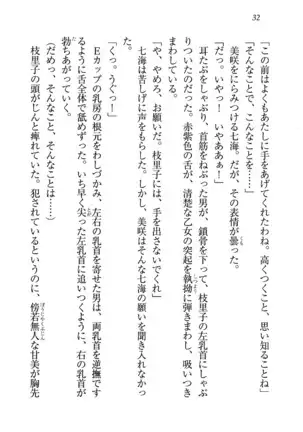 32
「この前はよくもあたしに手をあげてくれたわね。高くつくこと、思い知ることね」
「そんなことで、こんなことを……」
美咲をにらみつける七海。だが、その表情が曇った。
「だっ。いやっ！　いやぁーっ！」
耳たぶをしゃぶり、首筋をねぶった男が、鎖骨を下って、枝里子の左乳首にしゃぶ
りついたのだった。赤紫色の舌が、清楚な乙女の突起を執拗に弾きまわし、吸いつき
まわしている。
「や、やめろ、お願いだ。枝里子には、手を出さないでくれ」
七海は苦しげに声をもらした。しかし、美咲はそんな七海の願いを聞き入れなかっ
た。
「くっ。うぐっー！」
Eカップの乳房の根元をわしづかみ、左右の乳首を寄せた男は、両乳首を逆撫です
るように舌全体で舐めずった。いち早く尖った左乳首に追いつくように、右の乳首が
勃ちあがっていく。
（だめっ、そんなこと、そんなことは……）
枝里子の頭がじんと痺れていた。犯されているというのに、傍若無人な甘美が胸先